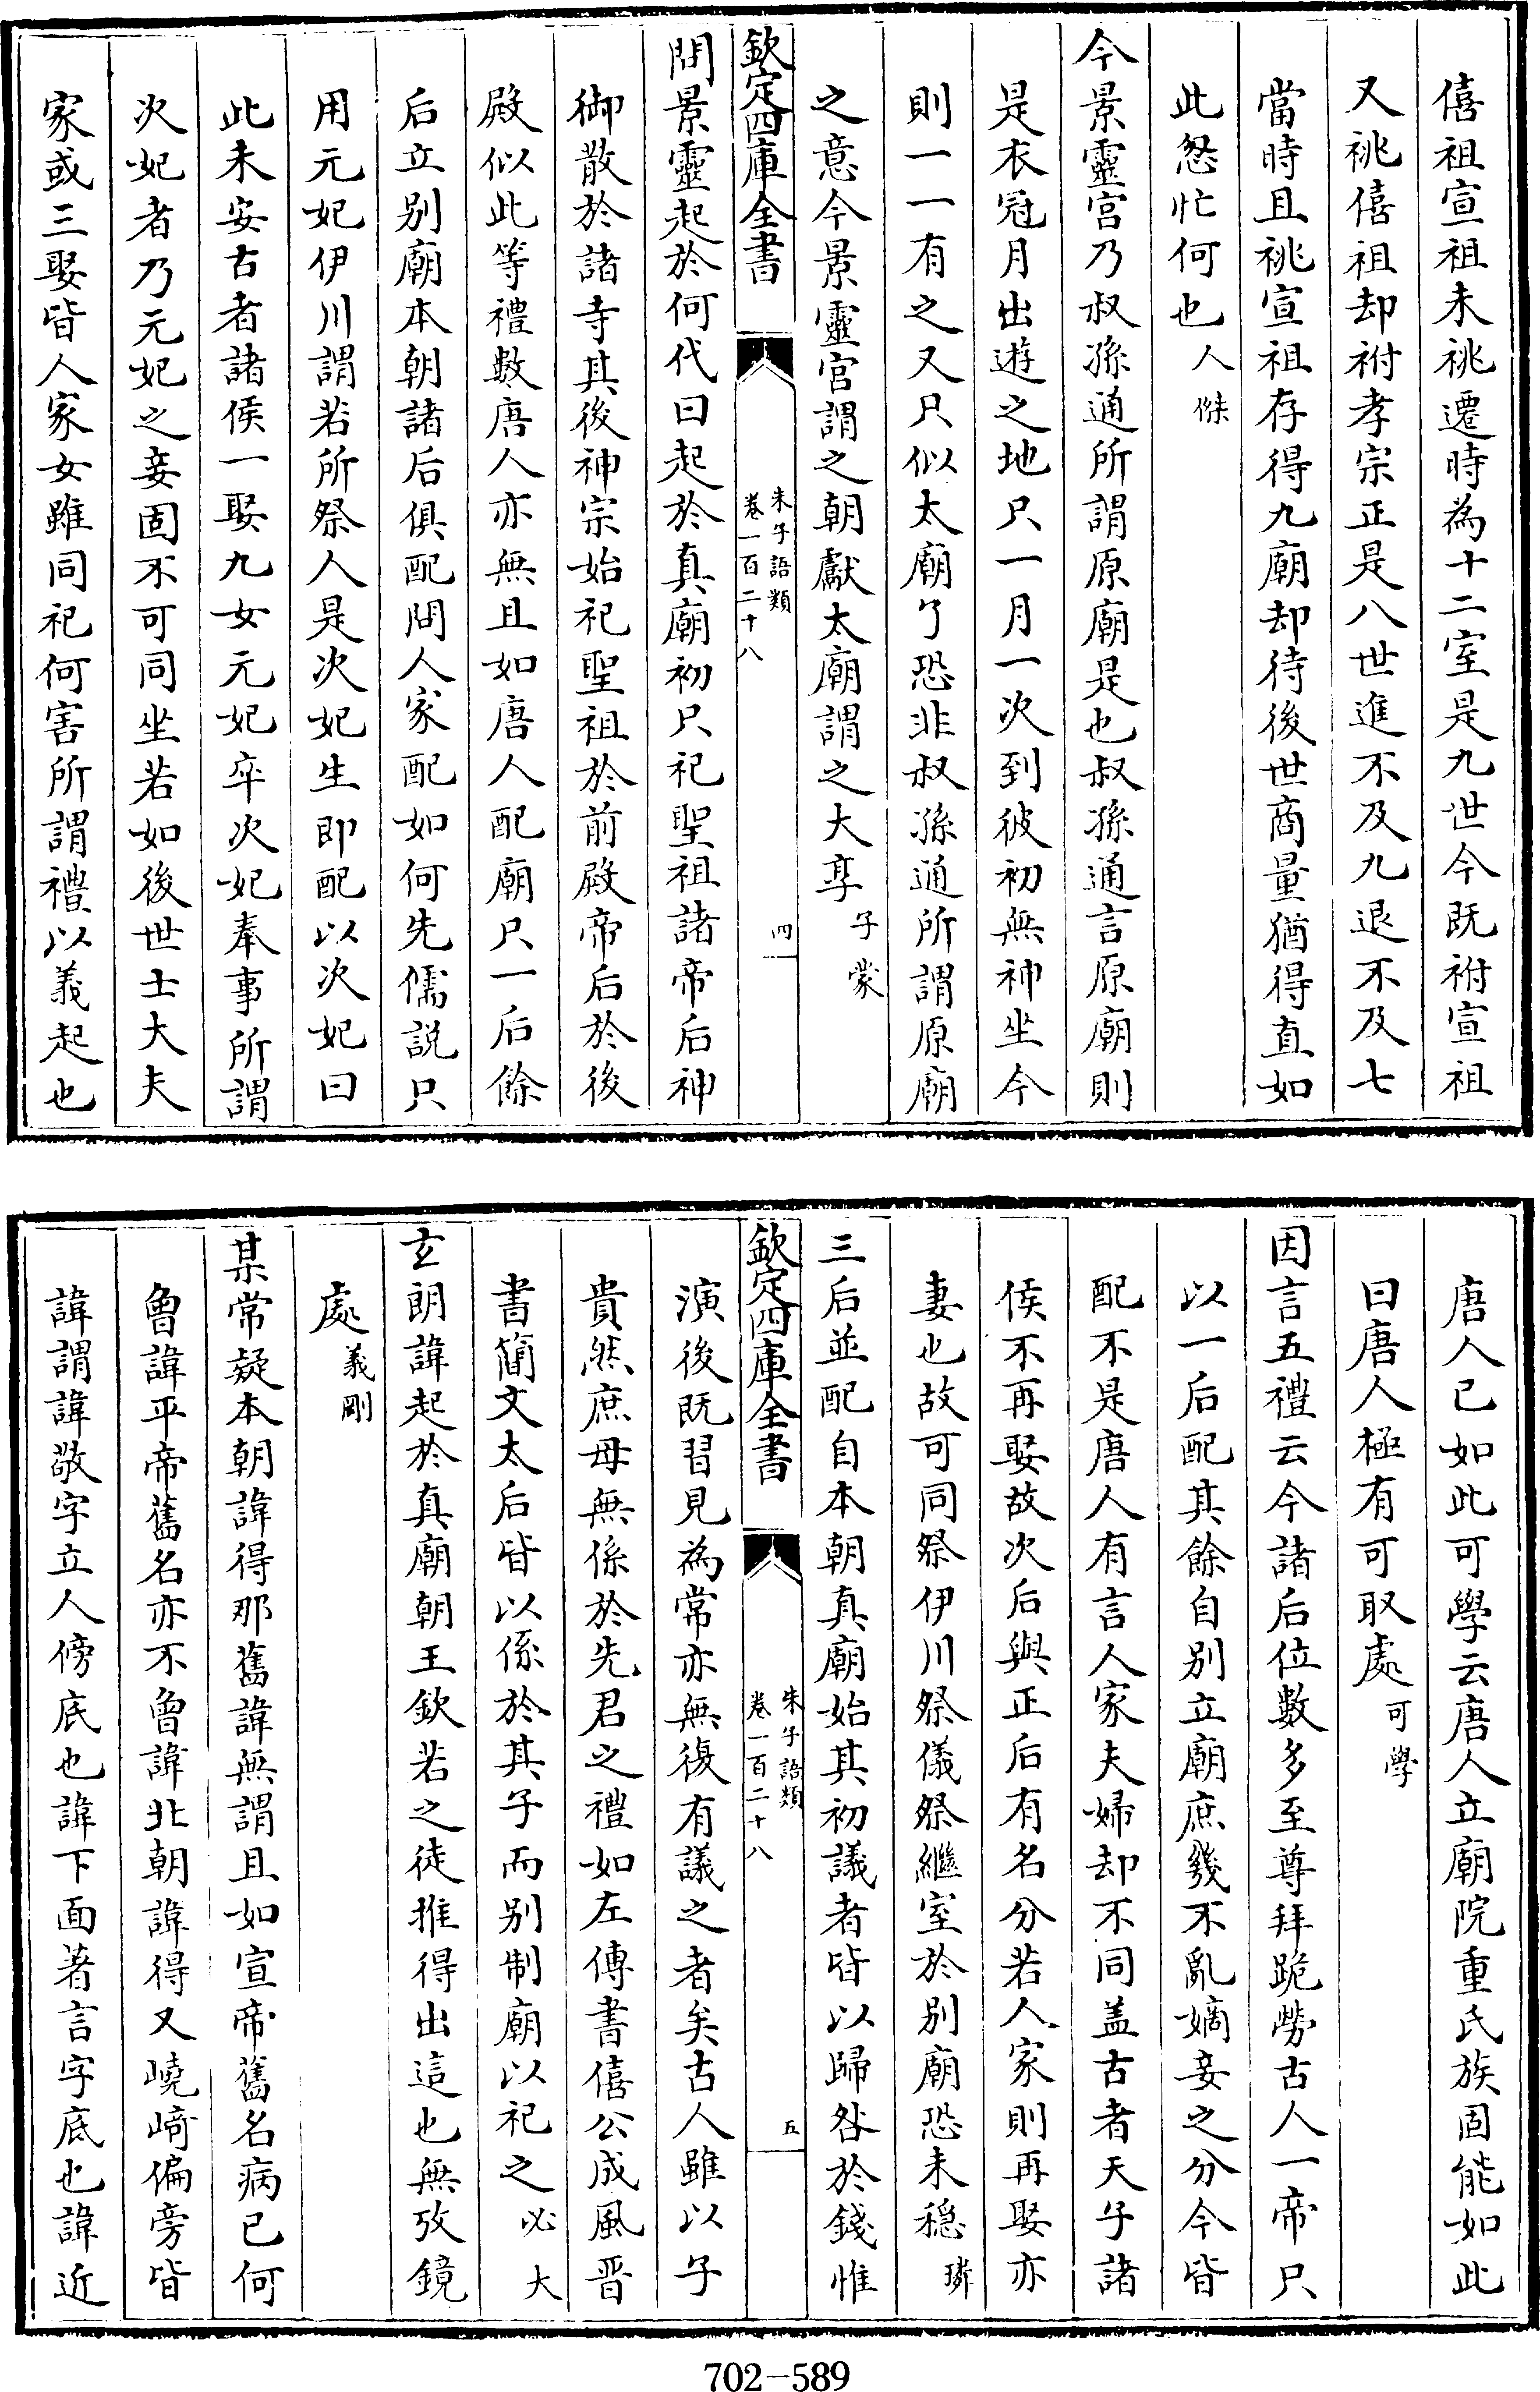 僖祖宣祖未祧遷時為十二室是九世今既祔宣祖
又祧僖祖却祔孝宗正是八世進不及九退不及七
當時且祧宣祖存得九廟却待後世商量猶得直如
此怱忙何也人傑
今景靈宫乃叔孫通所謂原廟是也叔孫通言原廟則
是衣冠月出遊之地只一月一次到彼初無神坐今
則一一有之又只似太廟了恐非叔孫通所謂原廟
之意今景靈宫謂之朝獻太廟謂之大享子蒙
欽定四庫全書
朱子語類
卷一百二十八
四
問景靈起於何代曰起於真廟初只祀聖祖諸帝后神
御散於諸寺其後神宗始祀聖祖於前殿帝后於後
殿似此等禮數唐人亦無且如唐人配廟只一后餘
后立别廟本朝諸后俱配問人家配如何先儒説只
用元妃伊川謂若所祭人是次妃生即配以次妃曰
此未安古者諸侯一娶九女元妃卒次妃奉事所謂
次妃者乃元妃之妾固不可同坐若如後世士大夫
家或三娶皆人家女雖同祀何害所謂禮以義起也
唐人已如此可學云唐人立廟院重氏族固能如此
曰唐人極有可取處可學
因言五禮云今諸后位數多至尊拜跪勞古人一帝只
以一后配其餘自别立廟庶幾不亂嫡妾之分今皆
配不是唐人有言人家夫婦却不同盖古者天子諸
侯不再娶故次后與正后有名分若人家則再娶亦
妻也故可同祭伊川祭儀祭繼室於别廟恐未穏璘
三后並配自本朝真廟始其初議者皆以歸咎於錢惟
欽定四庫全書
朱子語類
卷一百二十八
五
演後既習見為常亦無復有議之者矣古人雖以子
貴然庶母無係於先君之禮如左傳書僖公成風晋
書簡文太后皆以係於其子而别制廟以祀之必大
玄朗諱起於真廟朝王欽若之徒推得出這也無攷鏡
處義剛
某常疑本朝諱得那舊諱無謂且如宣帝舊名病已何
曾諱平帝舊名亦不曾諱北朝諱得又嶢崎偏旁皆
諱謂諱敬字立人傍底也諱下面著言字底也諱近
702-589